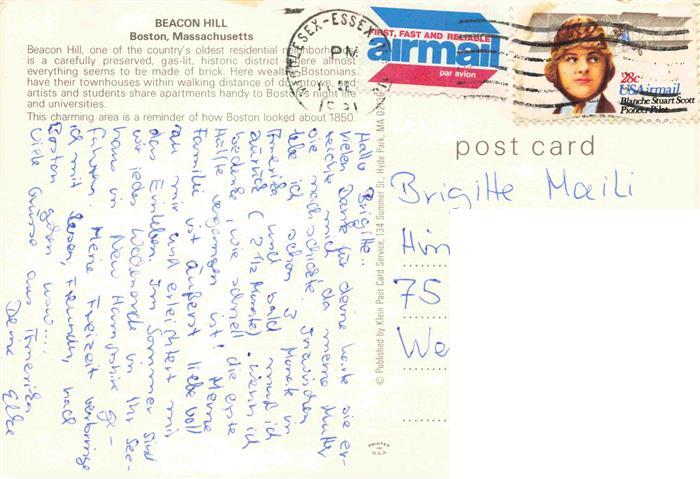 BEACON HILL
Boston, Massachusetts
Beacon Hill, one of the country's oldest residential neighborhoods
is a carefully preserved, gas-lit, historic district where almost
everything seems to be made of brick. Here wealthy Bostonians
have their townhouses within walking distance of downtown, and
artists and students share apartments handy to Boston's night life
and universities.
This charming area is a reminder of how Boston looked about 1850.
MIDDLESEX-ESSEX
PM
1981
FIRST, FAST AND RELIABLE
airmail
par avion
28c
USAirmail
Blanche Stuart Scott
Pioneer Pilot
post card
Hallo Brigitte,
vielen Dank für deine Karte sie er-
reichte mich da meine Mutter
sie nachschickte. Inzwischen
lebe ich schon 3 Monate in
Amerika und bald muß ich
zurück (2 1/2 Monate). Wenn ich
bedenke, wie schnell die erste
Hälfte vergangen ist! Meine
Familie ist äußerst liebevoll
zu mir und erleichtert mir
das Einleben. Im Sommer sind
wir jedes Wochenende in ihr See-
haus in New Hampshire ge-
fahren. Meine Freizeit verbringe
ich mit Lesen, Freunden, nach
Boston gehen usw...
Viele Grüsse aus Amerika
Deine Elke
© Published by Klein Post Card Service, 134 Summer St., Hyde Park, MA 02136
PRINTED IN U.S.A.
Brigitte
75
We